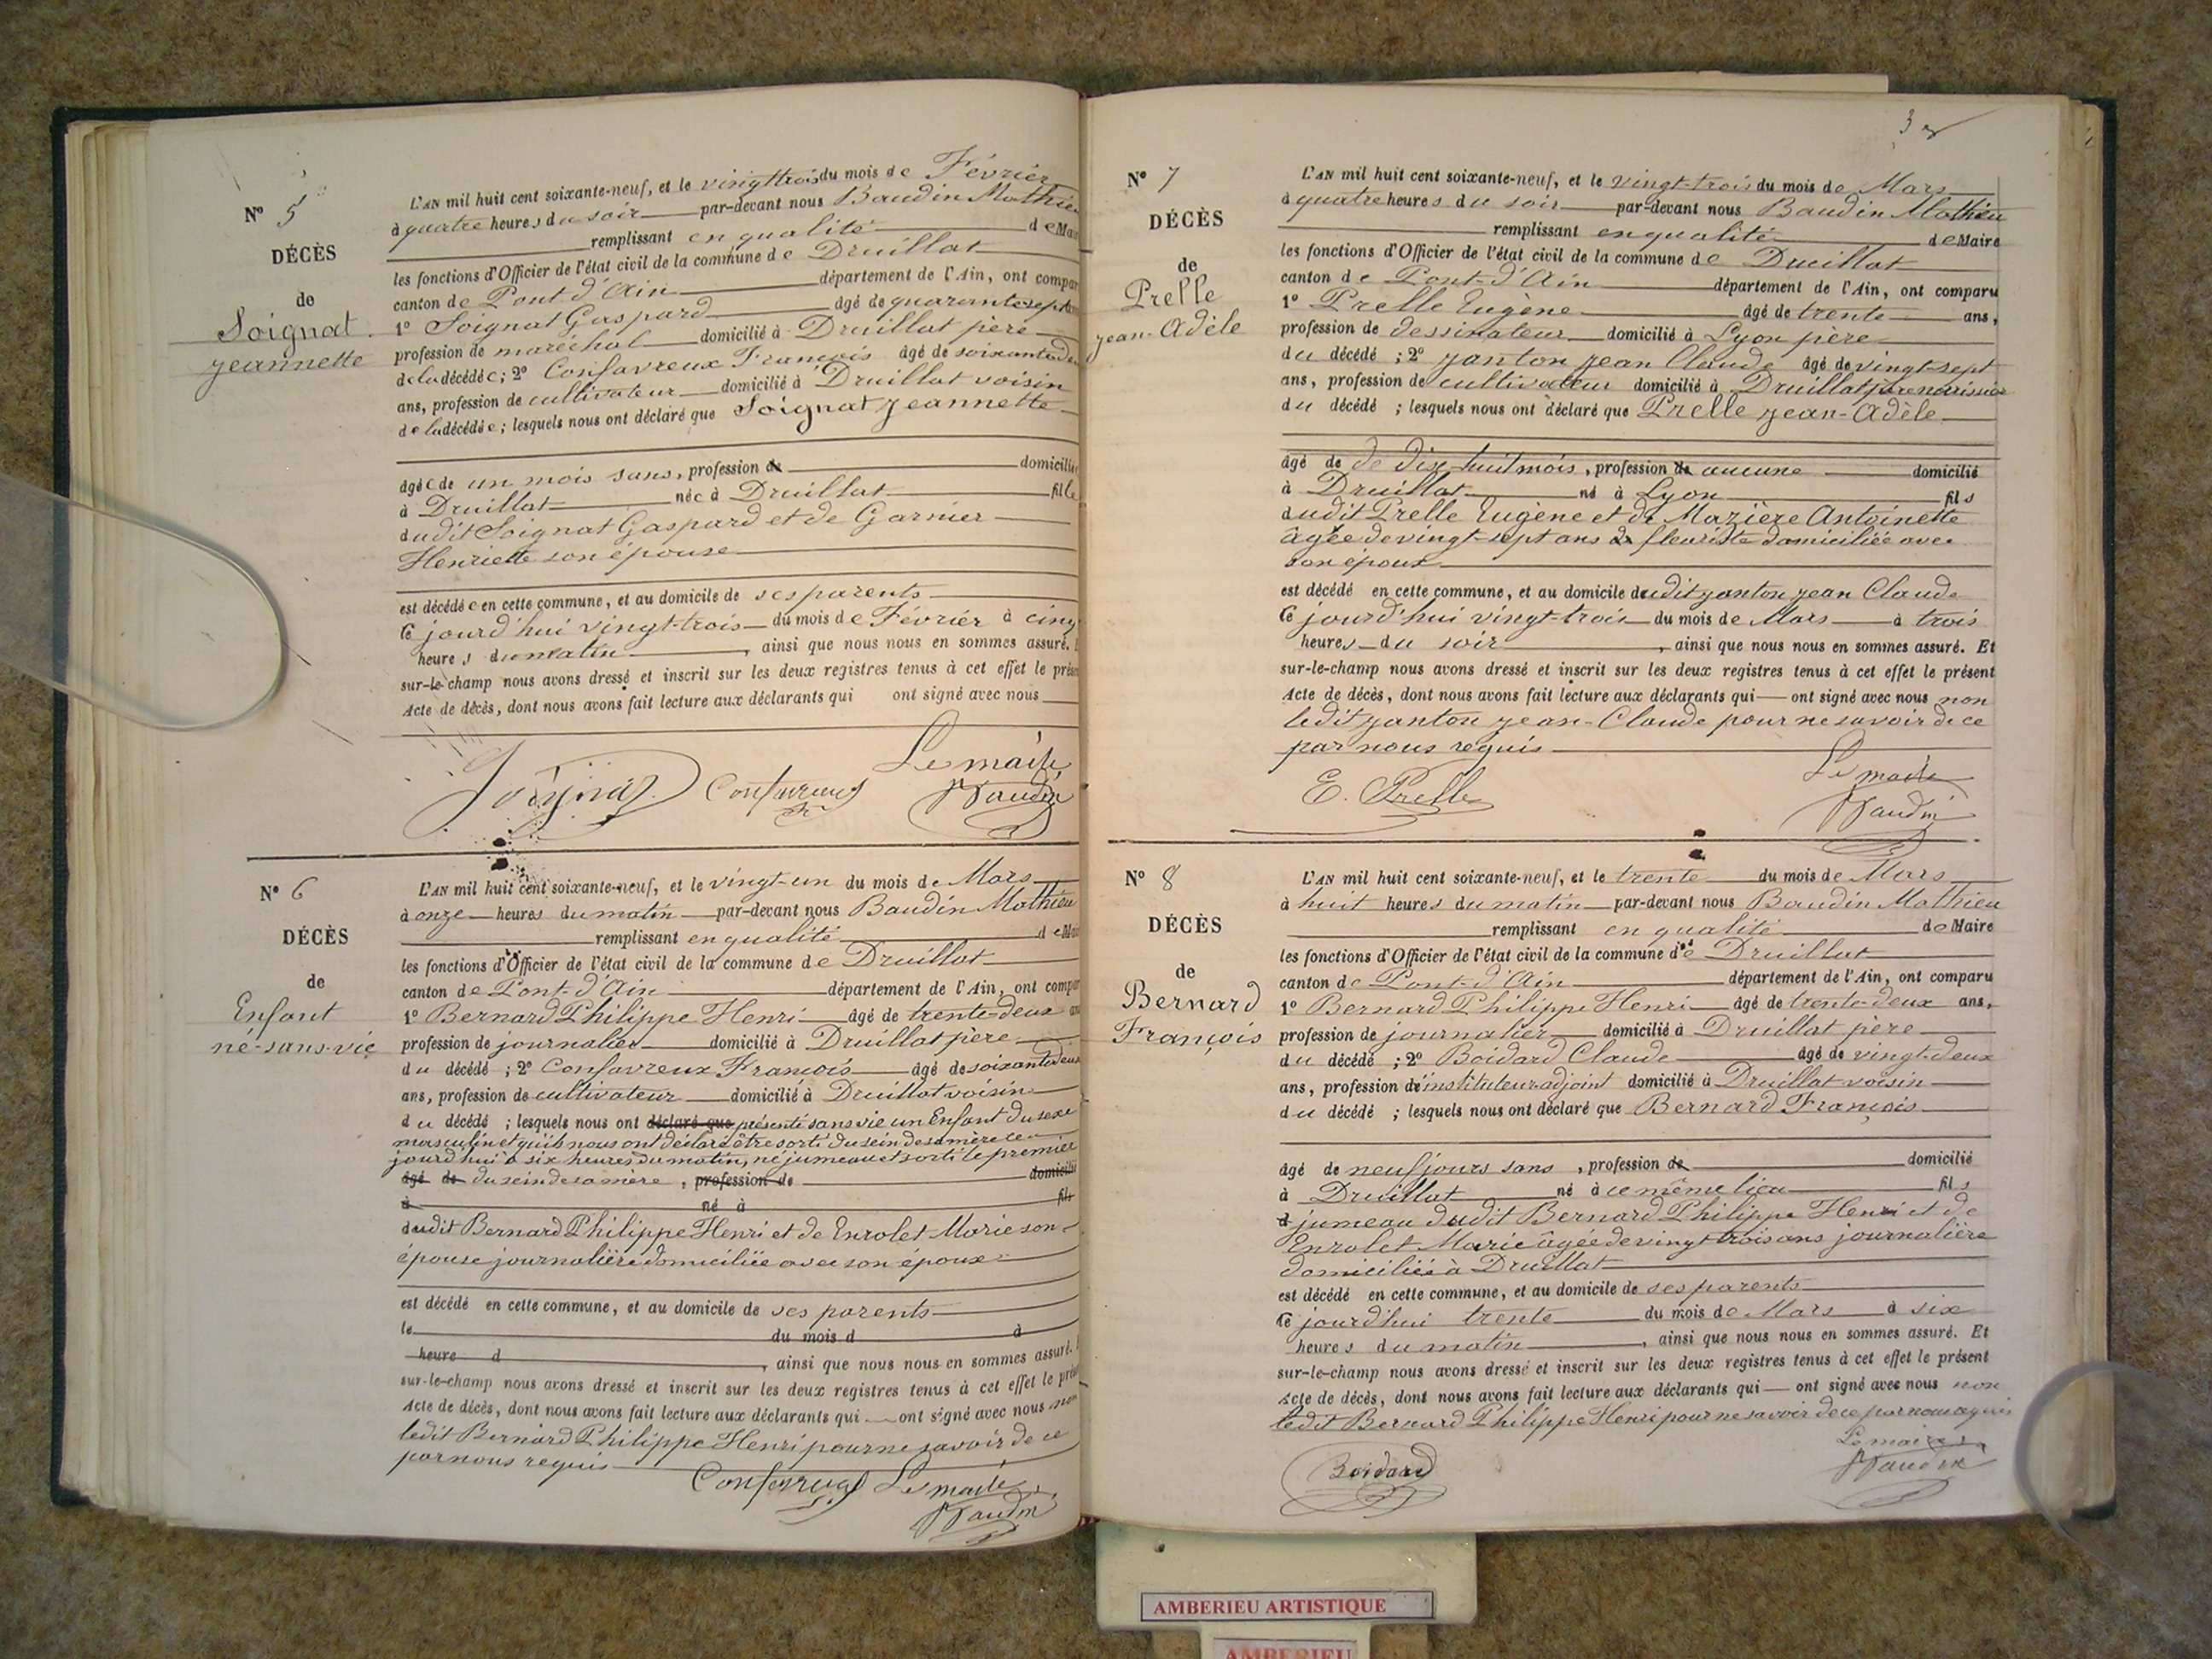 N° 5
DÉCÈS
de
Soignat
Jeannette
L'AN mil huit cent soixante-neuf, et le vingt trois du mois de Février
à quatre heures du soir par-devant nous Baudin Mathieu
remplissant en qualité de Mai
les fonctions d'Officier de l'état civil de la commune de Druillat
canton de Pont d'Ain département de l'Ain, ont compar
1° Soignat Gaspard âgé de quarante sept
profession de maréchal domicilié à Druillat père
de la décédée; 2° Confavreux François âgé de soixante de
ans, profession de cultivateur domicilié à Druillat voisin
de la décédée; lesquels nous ont déclaré que Soignat Jeannette
âgée de un mois sans, profession de domicilié
à Druillat née à Druillat fille
dudit Soignat Gaspard et de Garnier
Henriette son épouse
est décédée en cette commune, et au domicile de ses parents
le jourd'hui vingt-trois du mois de Février à cinq
heures du matin, ainsi que nous nous en sommes assuré.
sur-le-champ nous avons dressé et inscrit sur les deux registres tenus à cet effet le prése
Acte de décès, dont nous avons fait lecture aux déclarants qui ont signé avec nous
Soignat Confavreux Le maire
Baudin
N° 6
DÉCÈS
de
Enfant
né-sans-vie
L'AN mil huit cent soixante-neuf, et le vingt-un du mois de Mars
à onze heures du matin par-devant nous Baudin Mathieu
remplissant en qualité de Mai
les fonctions d'Officier de l'état civil de la commune de Druillat
canton de Pont-d'Ain département de l'Ain, ont compar
1° Bernard Philippe Henri âgé de trente-deux an
profession de journalier domicilié à Druillat père
du décédé ; 2° Confavreux François âgé de soixante deux
ans, profession de cultivateur domicilié à Druillat voisin
du décédé ; lesquels nous ont déclaré que présenté sans vie un Enfant du sexe
masculin et qu'ils nous ont déclaré être sorti du sein de sa mère ce
jourd'hui à six heures du matin, né jumeau et sorti le premier
âgé de du sein de sa mère, profession de domicilié
à né à fils
dudit Bernard Philippe Henri et de Enrolet Marie son
épouse journalière domiciliée avec son époux
est décédé en cette commune, et au domicile de ses parents
le du mois d à
heure d , ainsi que nous nous en sommes assuré.
sur-le-champ nous avons dressé et inscrit sur les deux registres tenus à cet effet le prés
Acte de décès, dont nous avons fait lecture aux déclarants qui ont signé avec nous non
ledit Bernard Philippe Henri pour ne savoir de ce
par nous requis
Confavreux Le maire
Baudin
3
N° 7
DÉCÈS
de
Prelle
Jean-Adèle
L'AN mil huit cent soixante-neuf, et le vingt-trois du mois de Mars
à quatre heures du soir par-devant nous Baudin Mathieu
remplissant en qualité de Maire
les fonctions d'Officier de l'état civil de la commune de Druillat
canton de Pont-d'Ain département de l'Ain, ont comparu
1° Prelle Eugène âgé de trente ans,
profession de dessinateur domicilié à Lyon père
du décédé ; 2° Janton Jean Claude âgé de vingt-sept
ans, profession de cultivateur domicilié à Druillat père nourricier
du décédé ; lesquels nous ont déclaré que Prelle Jean-Adèle
âgé de de dix-huit mois, profession de aucune domicilié
à Druillat né à Lyon fils
dudit Prelle Eugène et de Mazière Antoinette
âgée de vingt-sept ans fleuriste domiciliée avec
son époux
est décédé en cette commune, et au domicile dudit Janton Jean Claude
le jourd'hui vingt-trois du mois de Mars à trois
heures du soir, ainsi que nous nous en sommes assuré. Et
sur-le-champ nous avons dressé et inscrit sur les deux registres tenus à cet effet le présent
Acte de décès, dont nous avons fait lecture aux déclarants qui ont signé avec nous non
ledit Janton Jean-Claude pour ne savoir de ce
par nous requis
E. Prelle Le maire
Baudin
N° 8
DÉCÈS
de
Bernard
François
L'AN mil huit cent soixante-neuf, et le trente du mois de Mars
à huit heures du matin par-devant nous Baudin Mathieu
remplissant en qualité de Maire
les fonctions d'Officier de l'état civil de la commune de Druillat
canton de Pont-d'Ain département de l'Ain, ont comparu
1° Bernard Philippe Henri âgé de trente-deux ans,
profession de journalier domicilié à Druillat père
du décédé ; 2° Boidard Claude âgé de vingt-deux
ans, profession d'instituteur-adjoint domicilié à Druillat voisin
du décédé ; lesquels nous ont déclaré que Bernard François
âgé de neuf jours sans, profession de domicilié
à Druillat né à ce même lieu fils
jumeau dudit Bernard Philippe Henri et de
Enrolet Marie âgée de vingt trois ans journalière
domiciliée à Druillat
est décédé en cette commune, et au domicile de ses parents
le jourd'hui trente du mois de Mars à six
heures du matin, ainsi que nous nous en sommes assuré. Et
sur-le-champ nous avons dressé et inscrit sur les deux registres tenus à cet effet le présent
Acte de décès, dont nous avons fait lecture aux déclarants qui ont signé avec nous non
ledit Bernard Philippe Henri pour ne savoir de ce par nous requis
Boidard Le maire
Baudin
AMBERIEU ARTISTIQUE
AMBERIEU